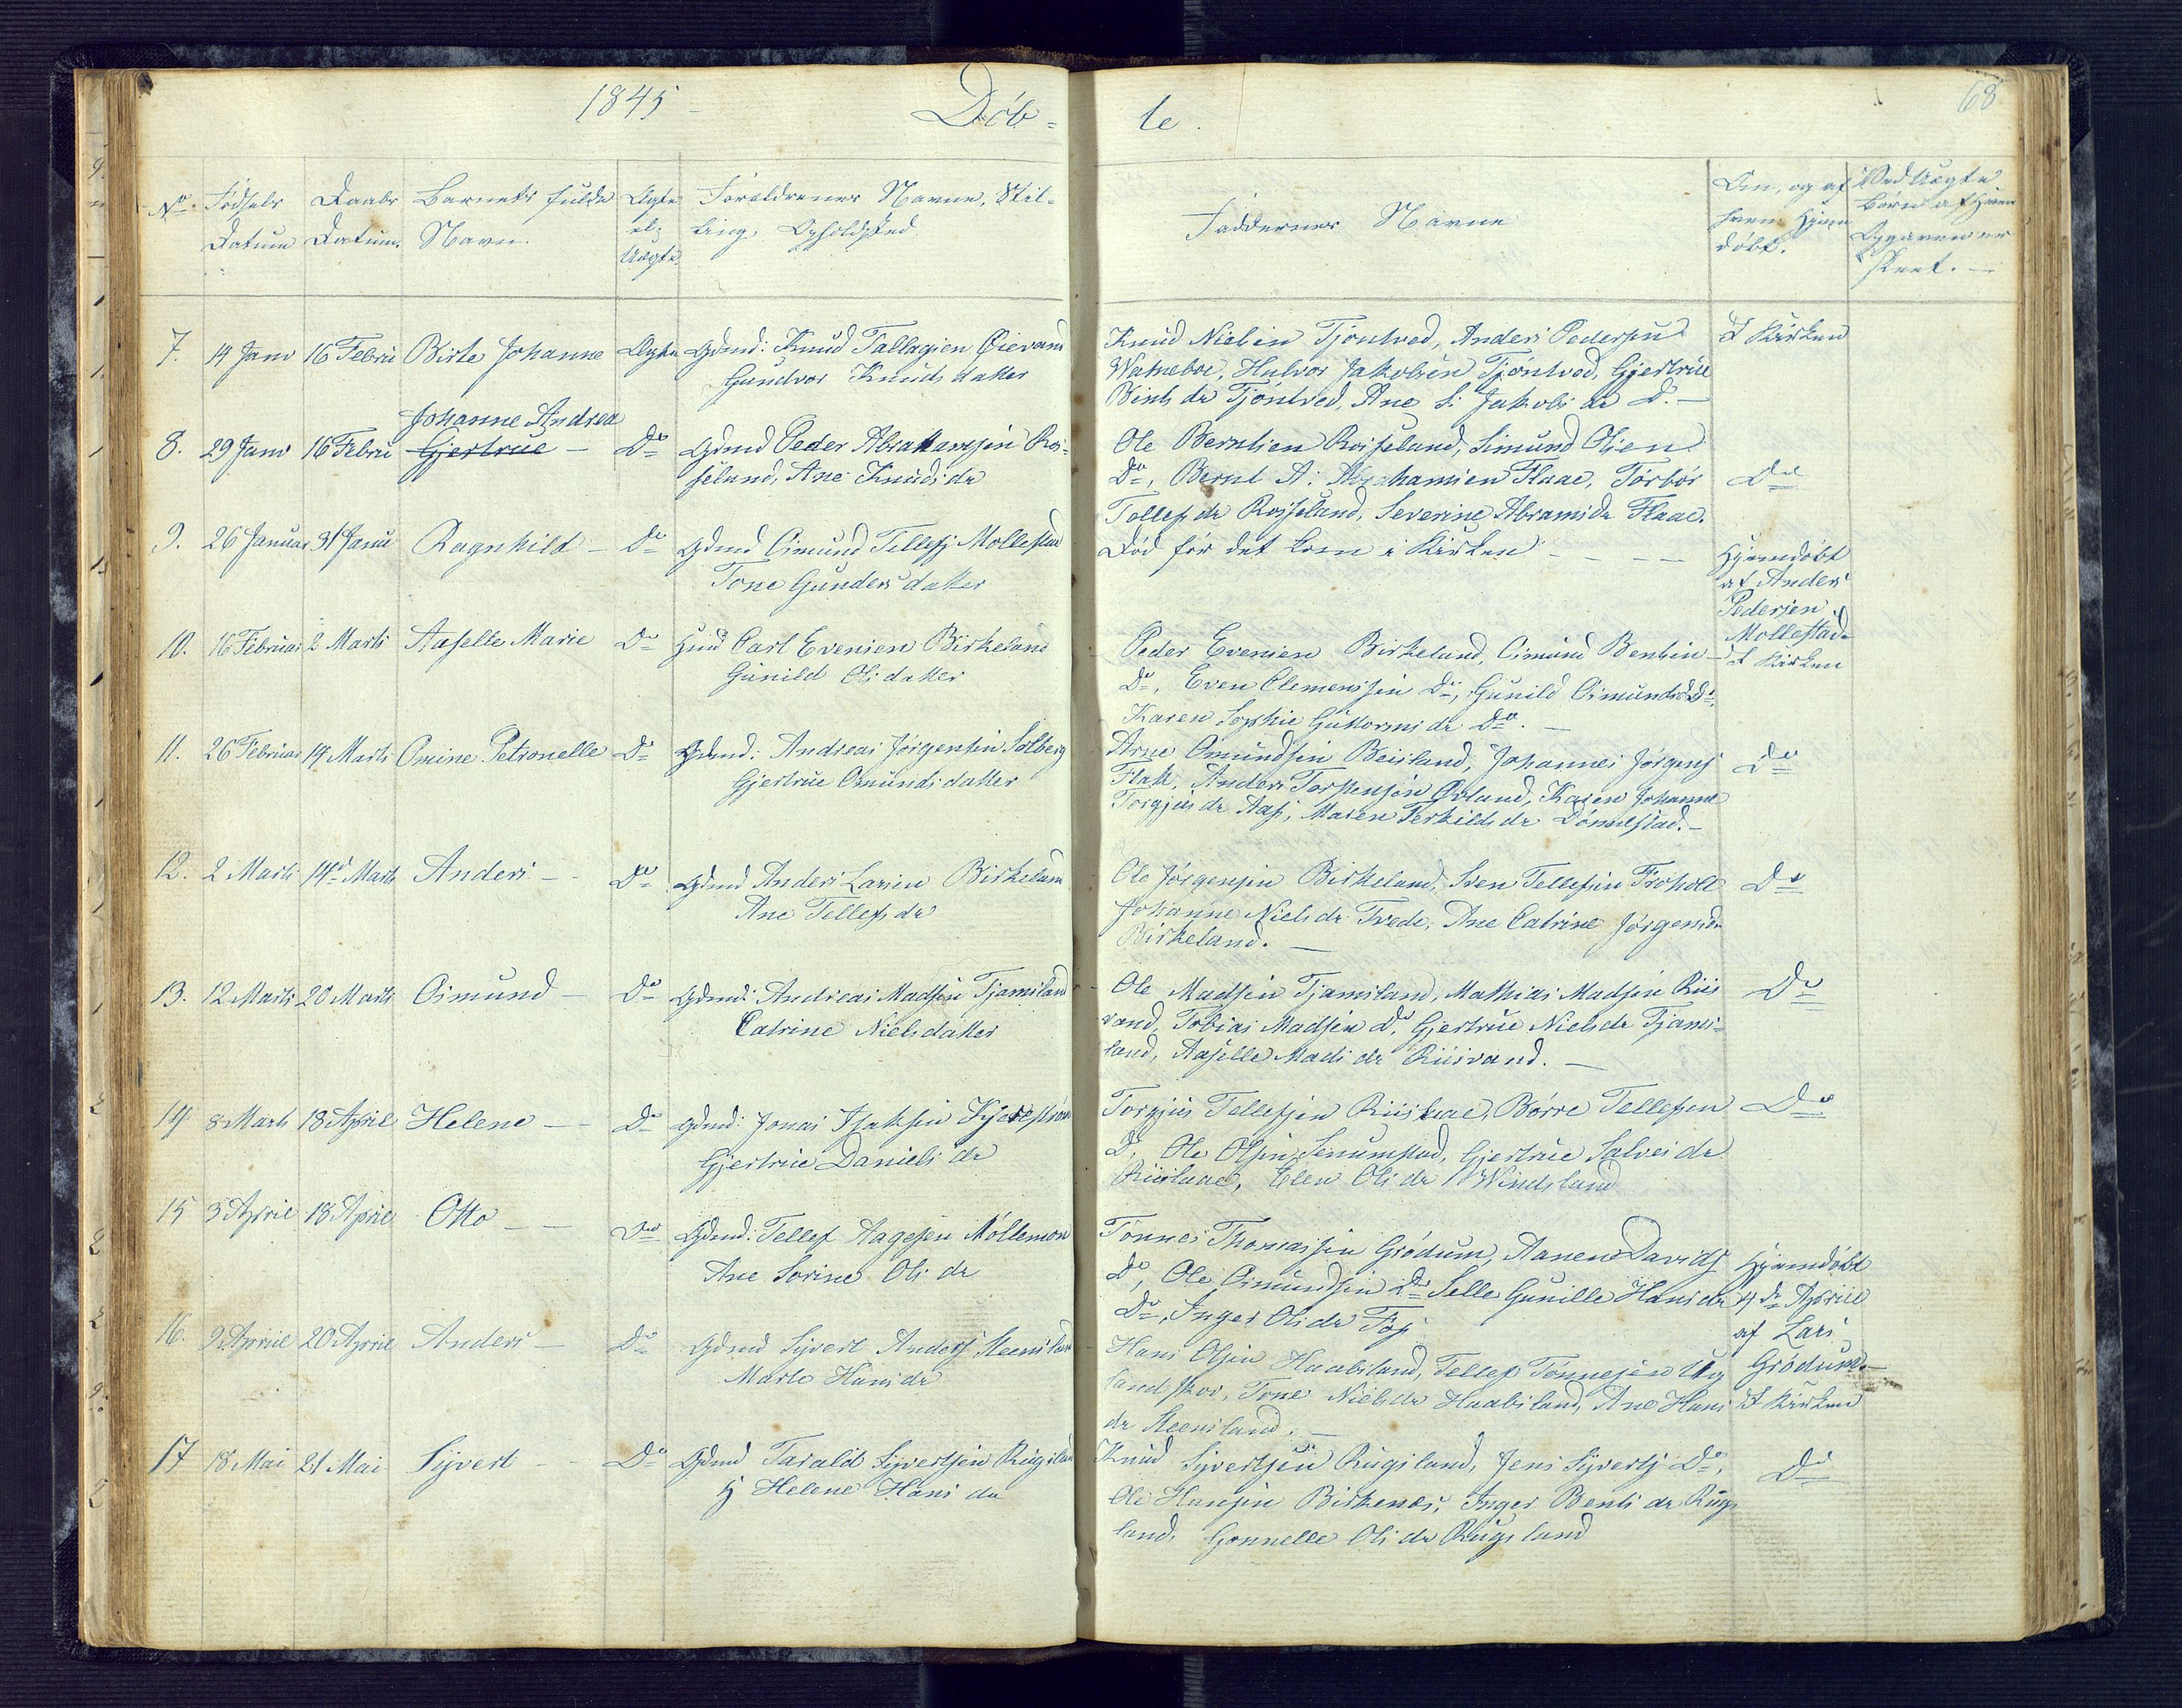 1845 - Döb = te . 68
No. Fødsels Datum
Daabs Datum.
Barnets fulde Navn.
Ægte el: Uægte.
Forældrenes Navne, Stil-
ling, Opholdssted.
Faddernes Navne
Om, og af hvem hjemdöbt.
Ved Uægte Børn af hvem Opgaven er skeet. -
7. 14 Janu 16 Febru Birte Johanne Ægte Gdmd: Knud Tallagsen Oievand
Gundvor Knudsdatter
Knud Nielsen Tjöntved, Anders Pedersen
Watneboe, Halvor Jakobsen Tjöntved, Gjertrue
Bints dr Tjöntved, Ane S: Jakobs dr Do. -
I Kirken
Johanne Andrea
8. 29 Janu 16 Febru Gjertrue - Do Gdmd Peder Abrahamsen Ros-
seland, Ane Knudsdr
Ole Berntsen Rosseland, Simund Olsen
Do, Bernt A: Abrahamsen Flaae, Törbör
Tollefs dr Rosseland, Severine Abramsdr Flaae.
Do
9. 26 Januar 31 Janu Ragnhild - Do Gdmd Osmund Tellefs Mollestad
Tone Gundersdatter
Död för det kom i Kirken - - - -
Hjemdöbt
af Anders
Pedersen
Mollestad
10. 16 Februar 2 Marts Aaselle Marie Do Hmd Carl Evensen Birkeland
Gunild Olsdatter
Peder Evensen Birkeland, Osmund Bentsen
Do, Even Clemensen Do, Gunild Osmundsd Do,
Karen Sophie Guttorms dr Do. -
I Kirken
11. 26 Februar 14 Marts Omine Petronelle Do Gdmd: Andreas Jörgensen Solberg
Gjertrue Omundsdatter
Arne Omundsen Beisland, Johannes Jörgens
Flak, Anders Torkensen Ovland, Karen Johanne
Torgjus dr Aas, Maren Terkilds dr Dömmestad. -
Do
12. 2 Marts 14de Marts Anders - Do Gdmd Anders Larsen Birkeland
Ane Tellefs dr
Ole Jörgensen Birkeland, Sven Tellefsen Froholt
Johanne Niels dr Trede, Ane Catrine Jörgensdr
Birkeland. -
Do
13. 12 Marts 20 Marts Osmund - Do Gdmd: Andreas Madsen Tjamsland
Catrine Nielsdatter
Ole Madsen Tjamsland, Mathias Madsen Riis
vand, Tobias Madsen Do, Gjertrue Nielsdr Tjams-
land, Aaselle Mads dr Riisvand. -
Do
14 8 Marts 18 April Helene - - Do Gdmd: Jonas Isaksen
Gjertrue Daniels dr
Torgjus Tellefsen Riislaae, Börre Tellefsen
Do, Ole Olsen Senumstad, Gjertrue Salves dr
Riislaae, Elen Ols dr Windsland
Do
15 3 April 18 April Otto - - Do Gdmd: Tellef Aagesen Möllemon
Ane Sorine Ols dr
Tönnes Thomassen Grödum, Aanen Davids
Do, Ole Osmundsen Do Selle Gunille Hansdr
Do, Inger Olsdr
Hjemdöbt
4 de April
af Lars
Grödum -
16. 9 April 20 April Anders - Do Gdmd Syvert Anders
Marte Hansdr
Hans Olsen Haabsland, Tellef Tönnesen Ug
landskov, Tone Nielsdr Haabsland, Ane Hans
dr Steensland. -
I Kirken
17 18 Mai 21 Mai Syvert - Do Gdmd Tarald Syvertsen Rugsland
Helene Hans dr
Knud Syvertsen Rugsland, Jens Syverts Do,
Ole Hansen Birkenes, Inger Bents dr Rugs
land, Gonnelle Ols dr Rugsland
Do